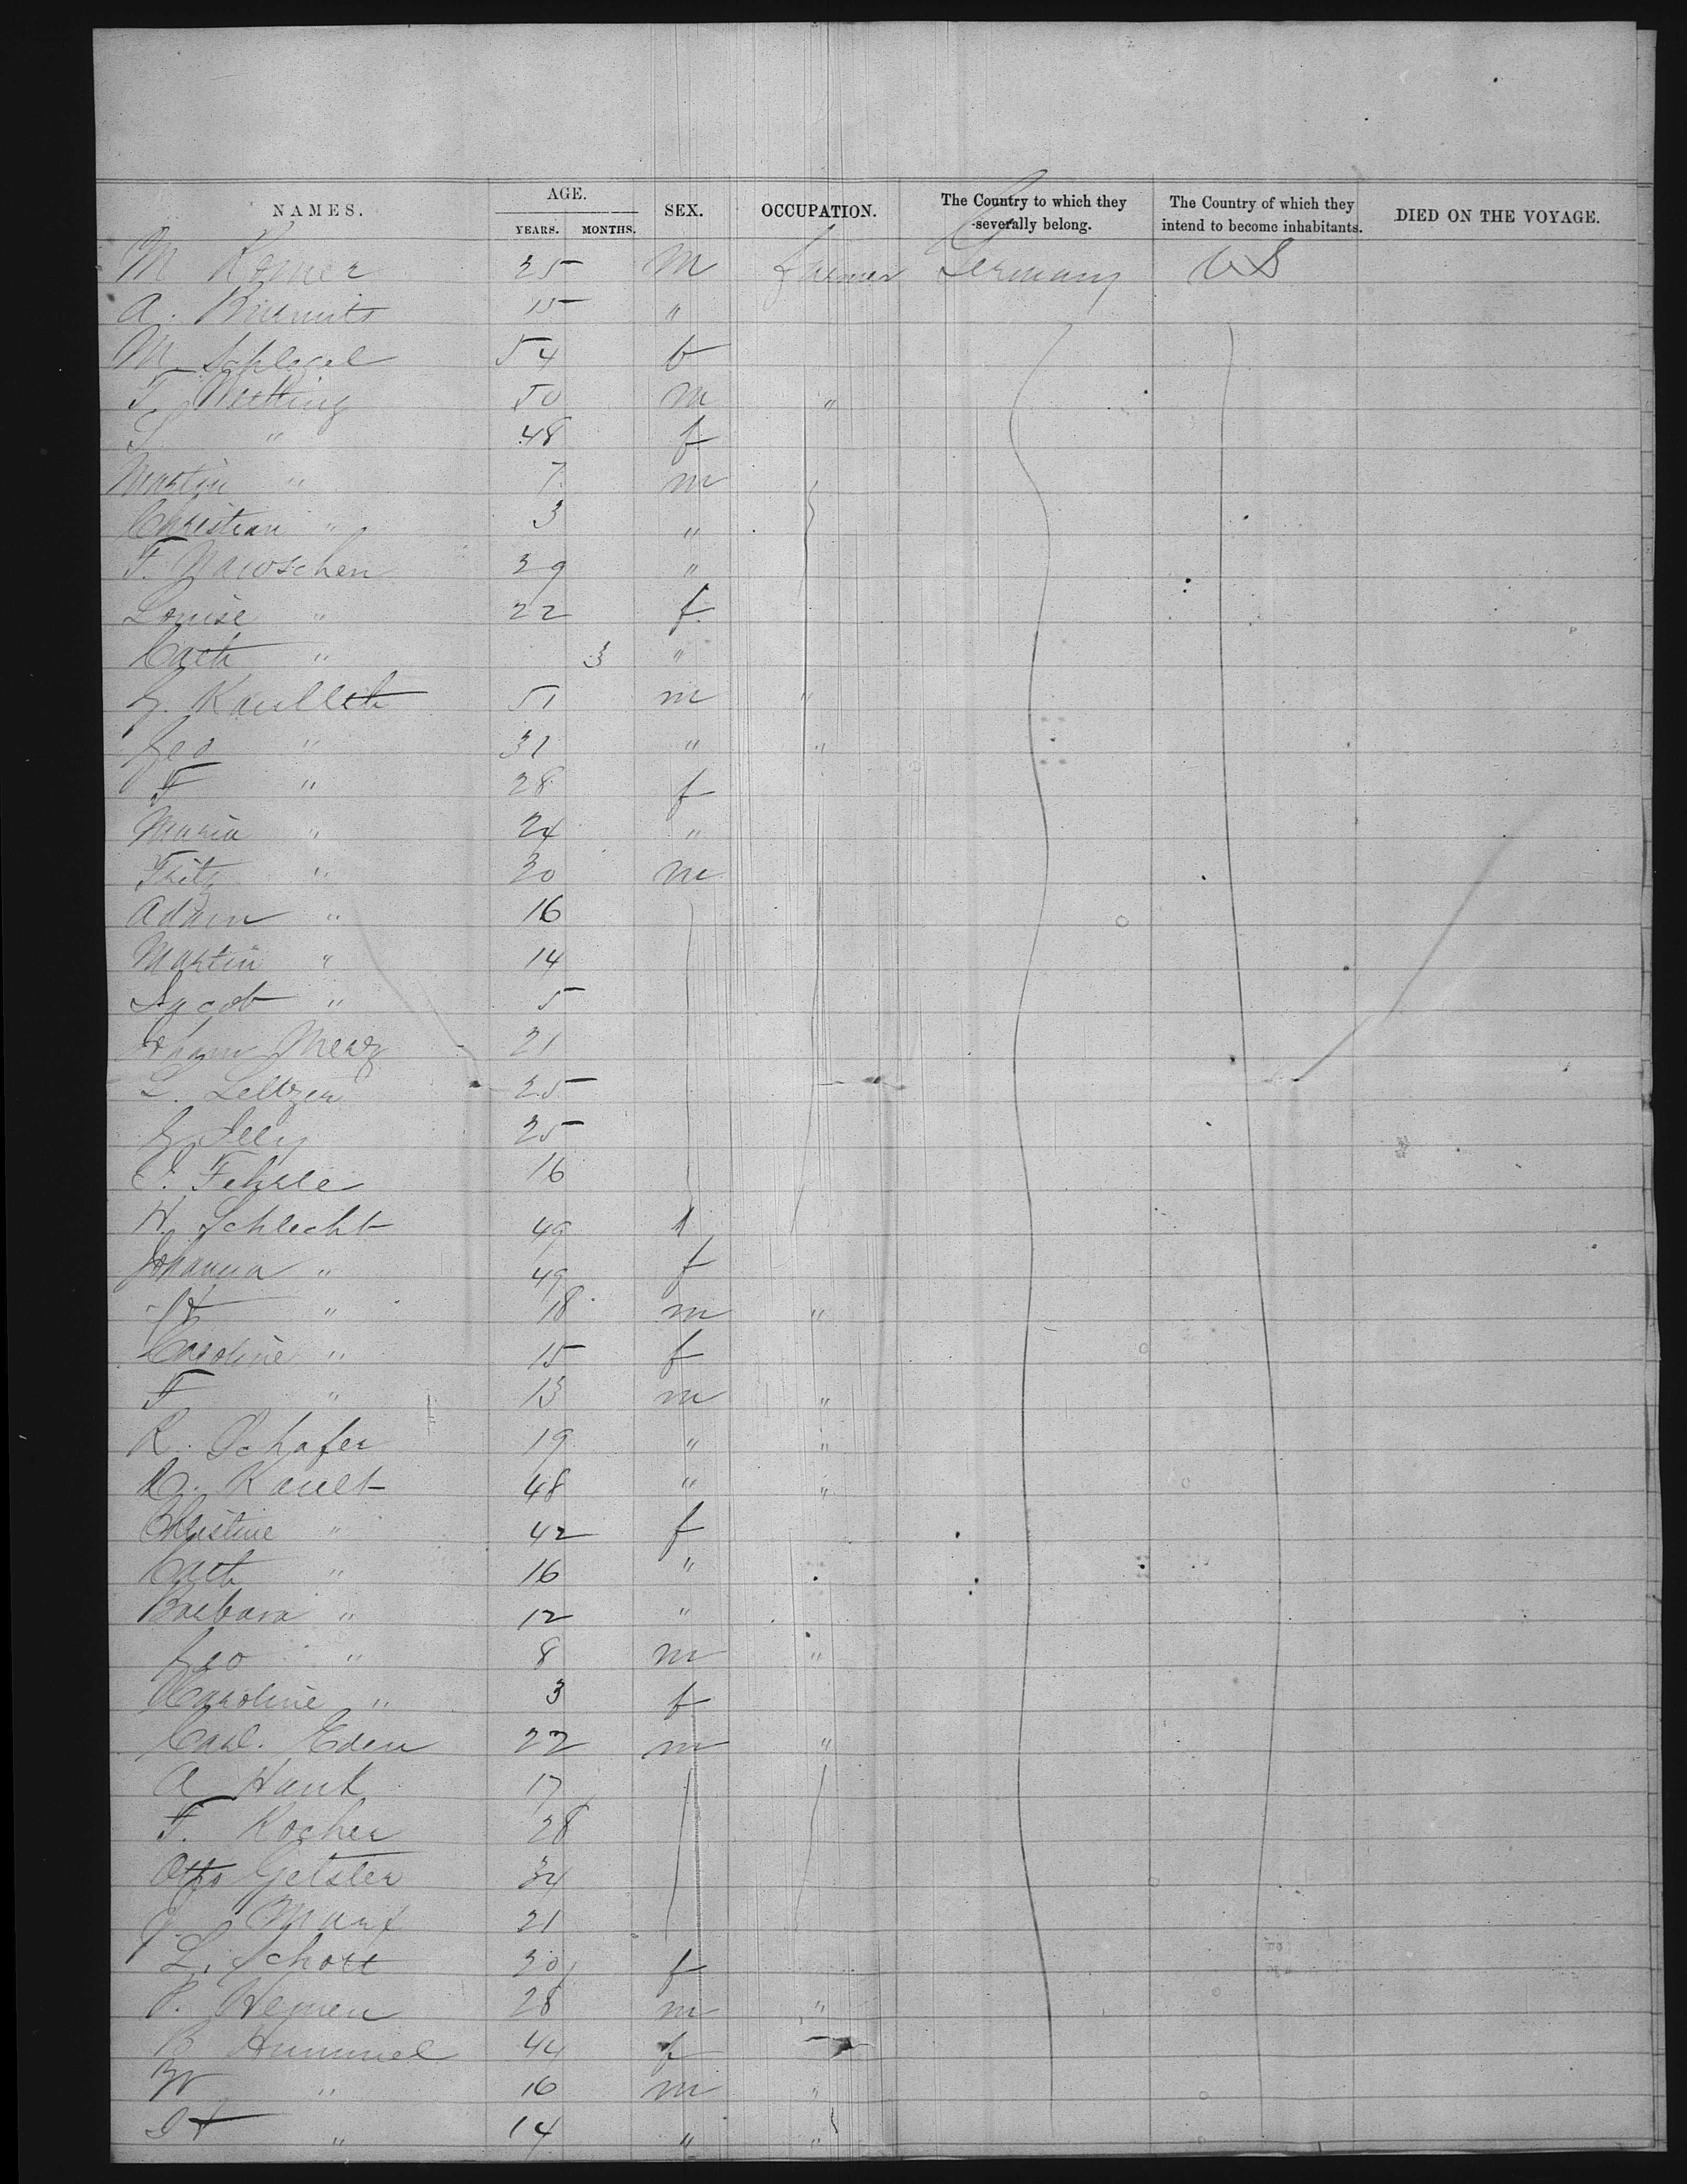 NAMES. AGE. YEARS. MONTHS. SEX. OCCUPATION. The Country to which they severally belong. The Country of which they intend to become inhabitants. DIED ON THE VOYAGE.
M 25 m farmer Germany US
A. 15 "
M Schlegel 54 f
F. 50 m "
S " 48 f
Martin " 7 m
Christian " 3 "
F. 29 "
Louise " 22 f
Cath " 3 "
G. 51 m "
Geo " 31 " "
F " 28 f
Maria " 24 "
Fritz " 30 m
Adam " 16
Martin " 14
Jacob " 5
Johann Merz 21
L. Seltzer 25
G 25
C. Fehrle 16
H. Schlecht 49
Johanna " 49 f
" 18 m "
Caroline " 15 f
F " 13 m "
R. Schafer 19 " "
Kault 48 " "
Christine " 42 f
Cath " 16 "
Barbara " 12 "
Geo " 8 m "
Caroline " 3 f
Carl. Eden 22 m "
A Hauk 17
F. Kocher 28
Otto Geisler 34
J. Marx 21
L. Schott 20 f
P. 28 m "
B Hummel 44 f
W " 16 m "
" 14 " "